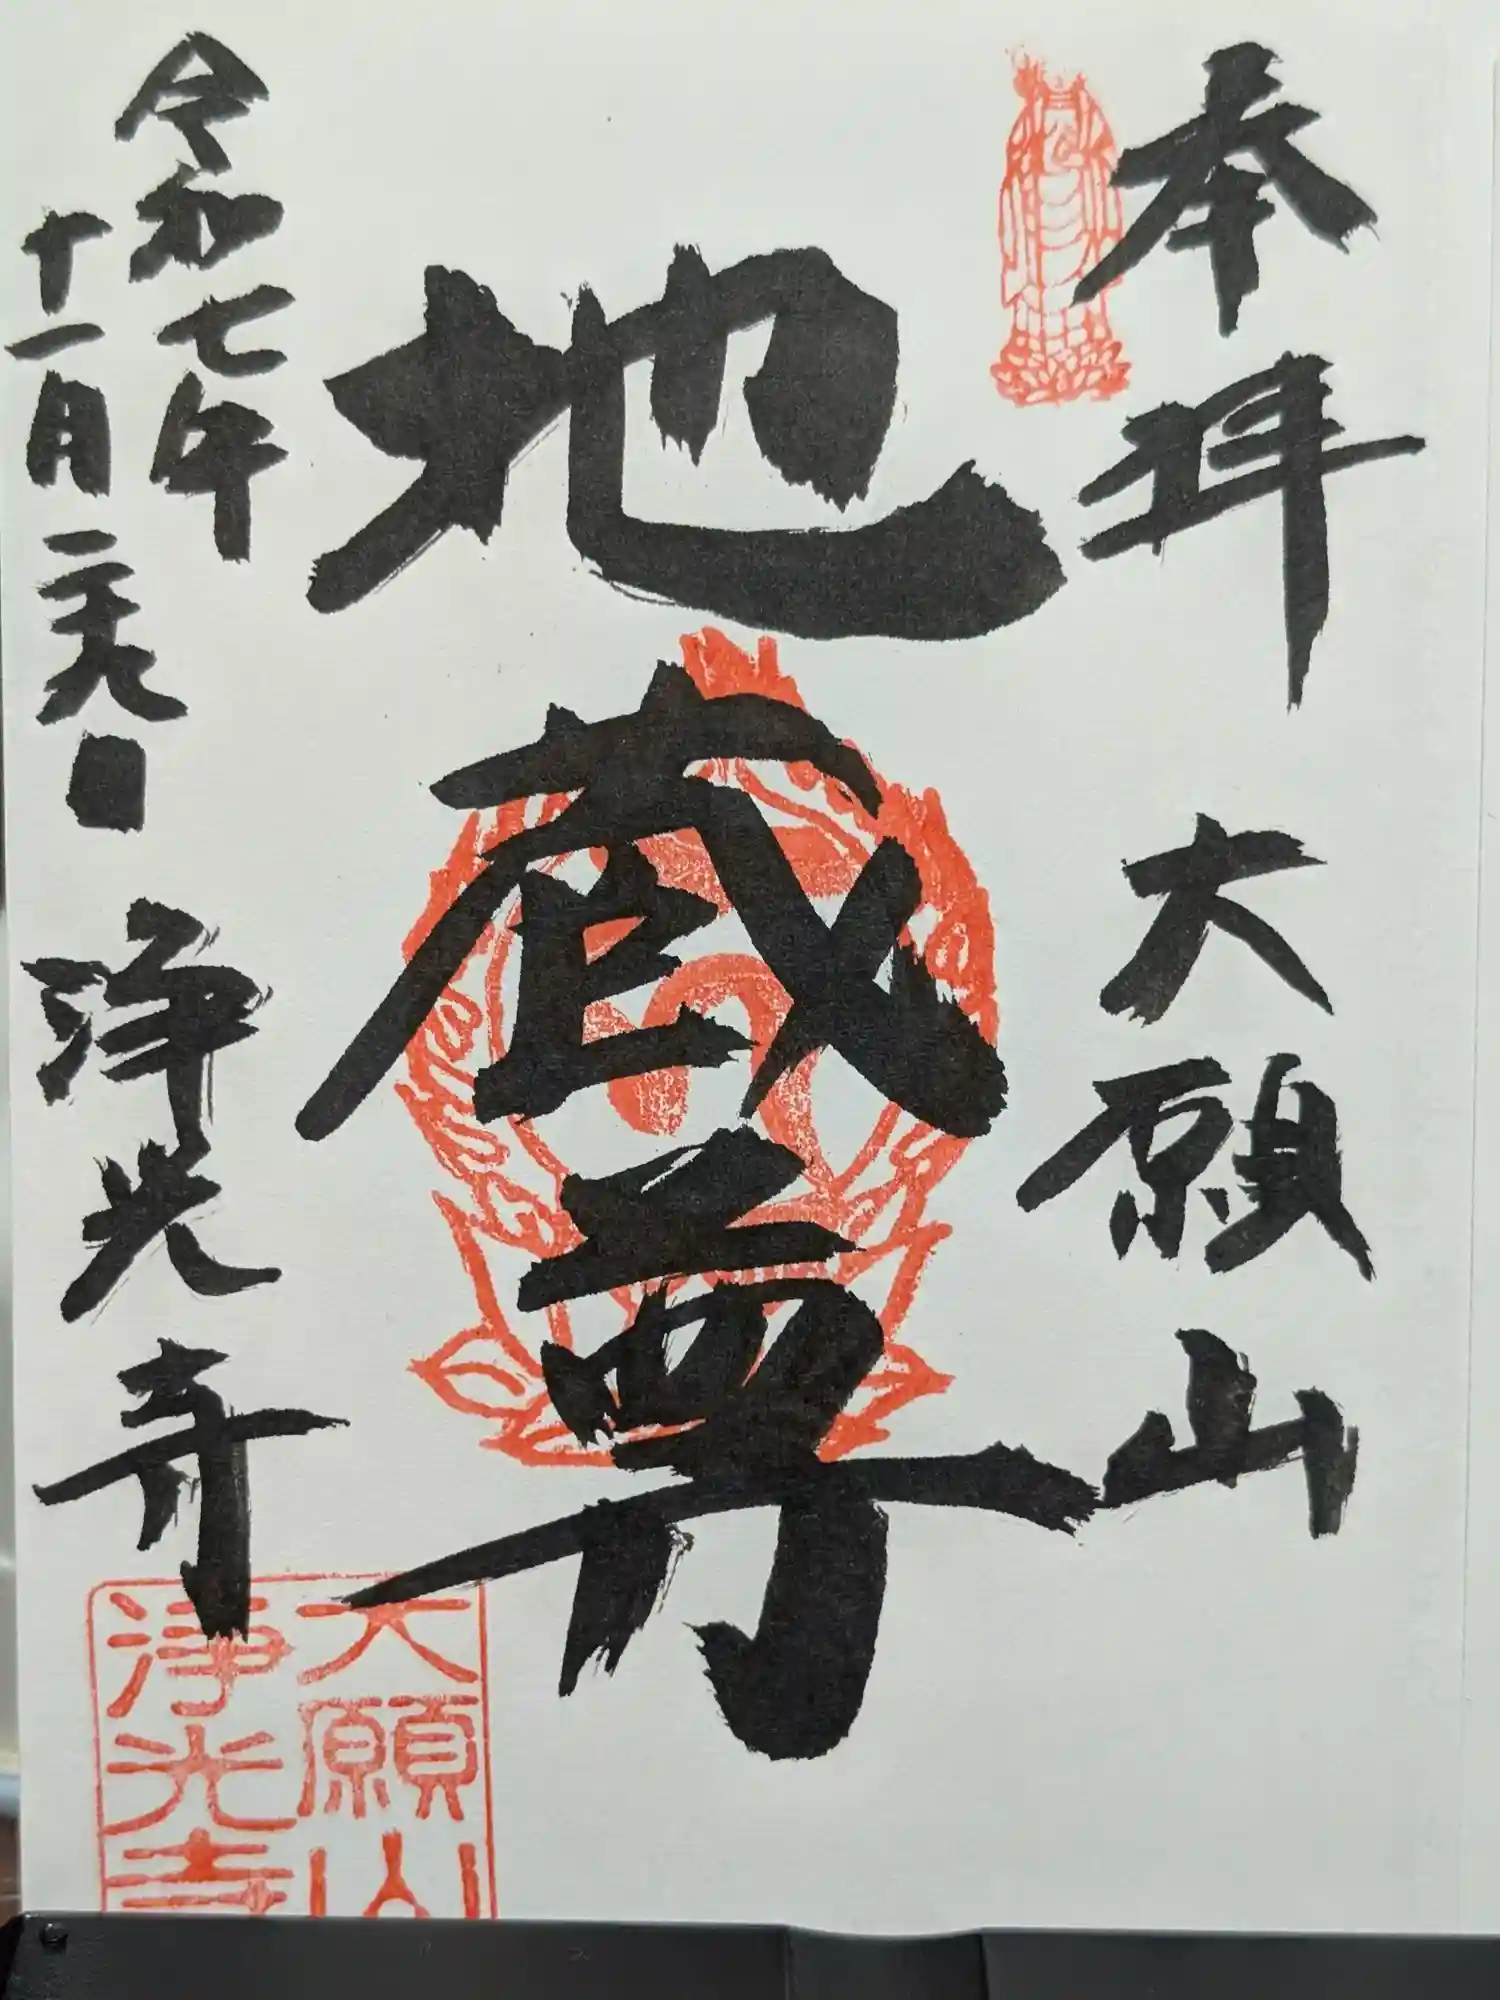 奉拝 大願山
地蔵尊
令和七年
十一月二十九日 浄光寺
大願山
浄光寺